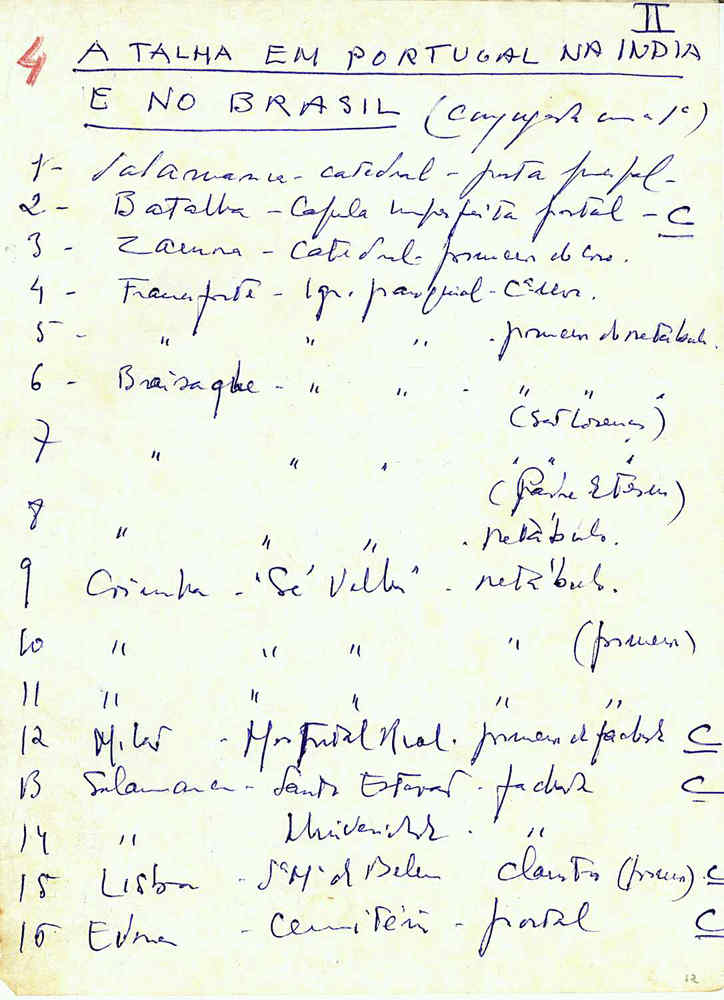 II
4 A TALHA EM PORTUGAL NA INDIA
E NO BRASIL (Conjugada com a 1ª)
1 - Salamanca - catedral - porta principal -
2 - Batalha - Capela Imperfeita portal - C
3 - Zamora - Catedral - pormenor do coro.
4 - - Igr. paroquial -
5 - " " " - pormenor do retábulo.
6 - - " " - " " "
(São Lourenço)
7 " " " " " "
(Padre Eterno)
8 " " " . retábulo.
9 Coimbra - "Sé Velha" - retábulo.
10 " " " " (pormenor)
11 " " " " "
12 Milão - Hospital Real. pormenor da fachada C
13 Salamanca - Santo Estevão - fachada C
14 " Universidade - "
15 Lisboa - Sª Mª de Belem claustro (pormen.) C
16 Evora - Cemitério - portal C
12